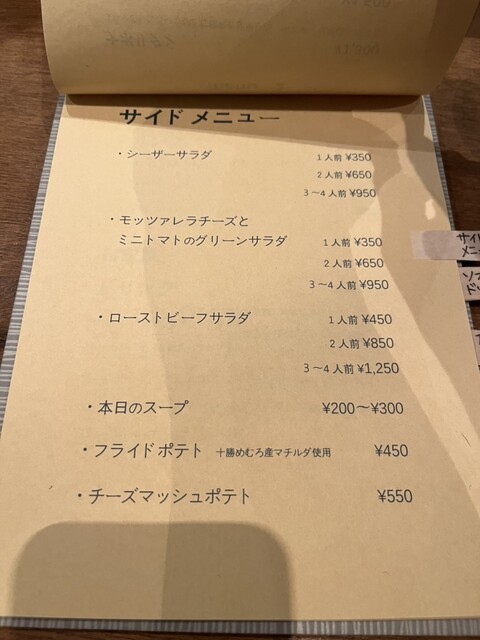 サイドメニュー
・シーザーサラダ 1人前 ¥350
2人前 ¥650
3～4人前 ¥950
・モッツァレラチーズと
ミニトマトのグリーンサラダ 1人前 ¥350
2人前 ¥650
3～4人前 ¥950
・ローストビーフサラダ 1人前 ¥450
2人前 ¥850
3～4人前 ¥1,250
・本日のスープ ¥200～¥300
・フライドポテト 十勝めむろ産マチルダ使用 ¥450
・チーズマッシュポテト ¥550
サイド
メニ
ソフ
ドリ